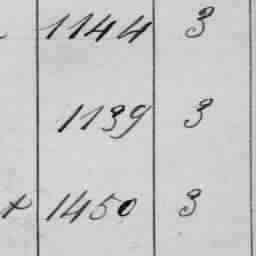 1144 3
1139 3
x 1450 3